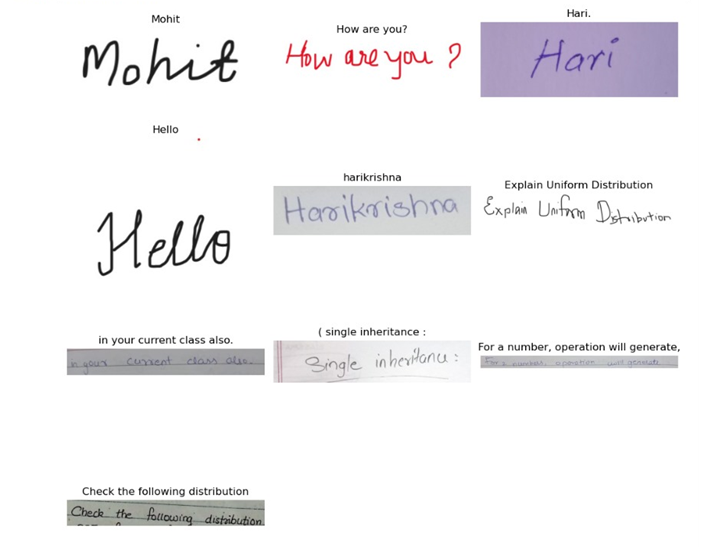 Mohit
Mohit
How are you?
How are you ?
Hari.
Hari
Hello
Hello
harikrishna
Harikrishna
Explain Uniform Distribution
Explain Uniform Distribution
in your current class also.
in your current class also.
( single inheritance :
Single inheritance :
For a number, operation will generate,
For a number, operation will generate
Check the following distribution
Check the following distribution